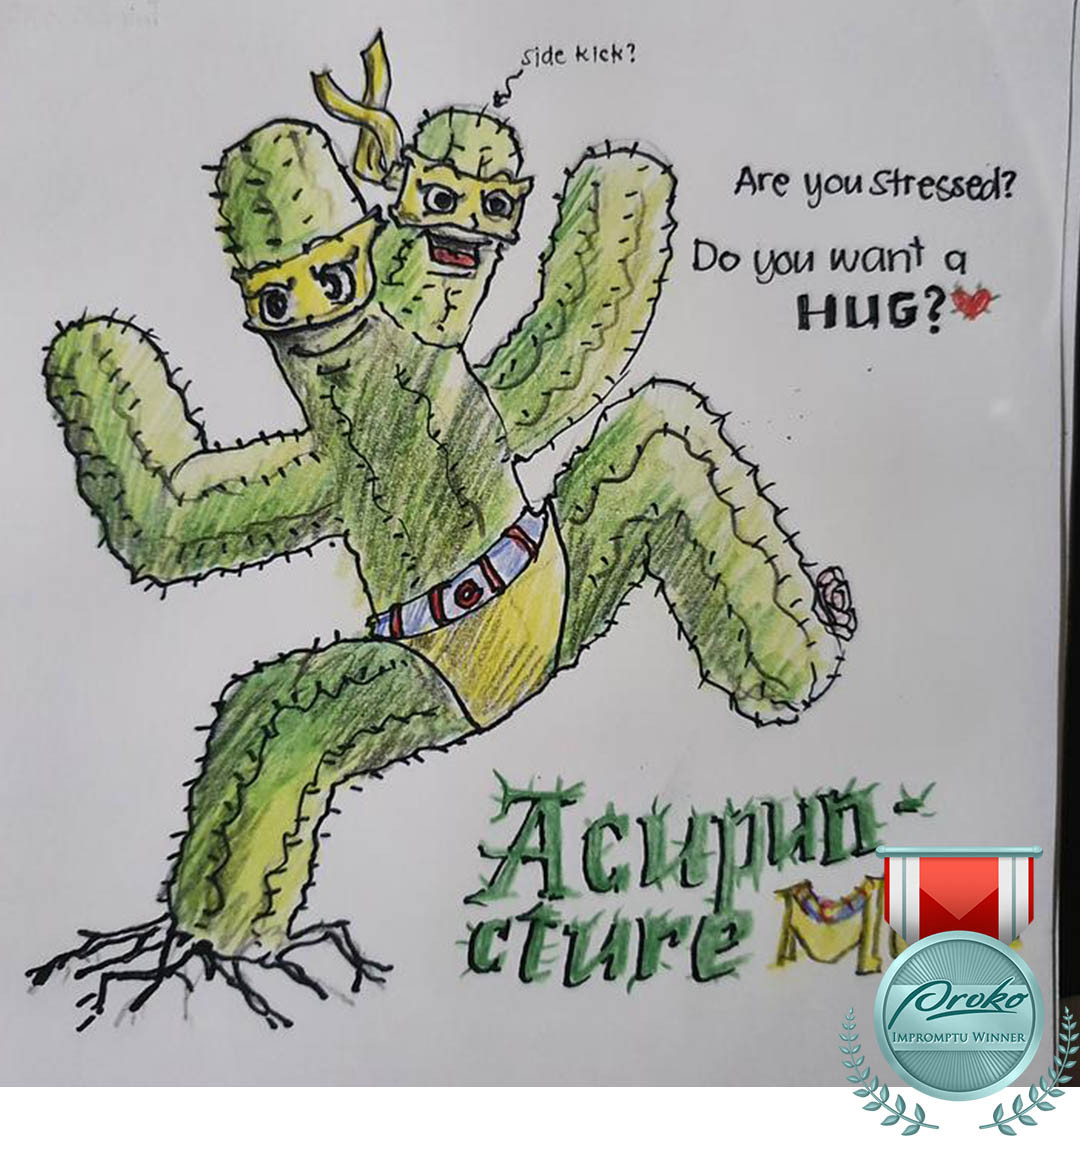 side kick?
Are you stressed?
Do you want a
HUG?
Acupun-
cture
Proko
IMPROMPTU WINNER